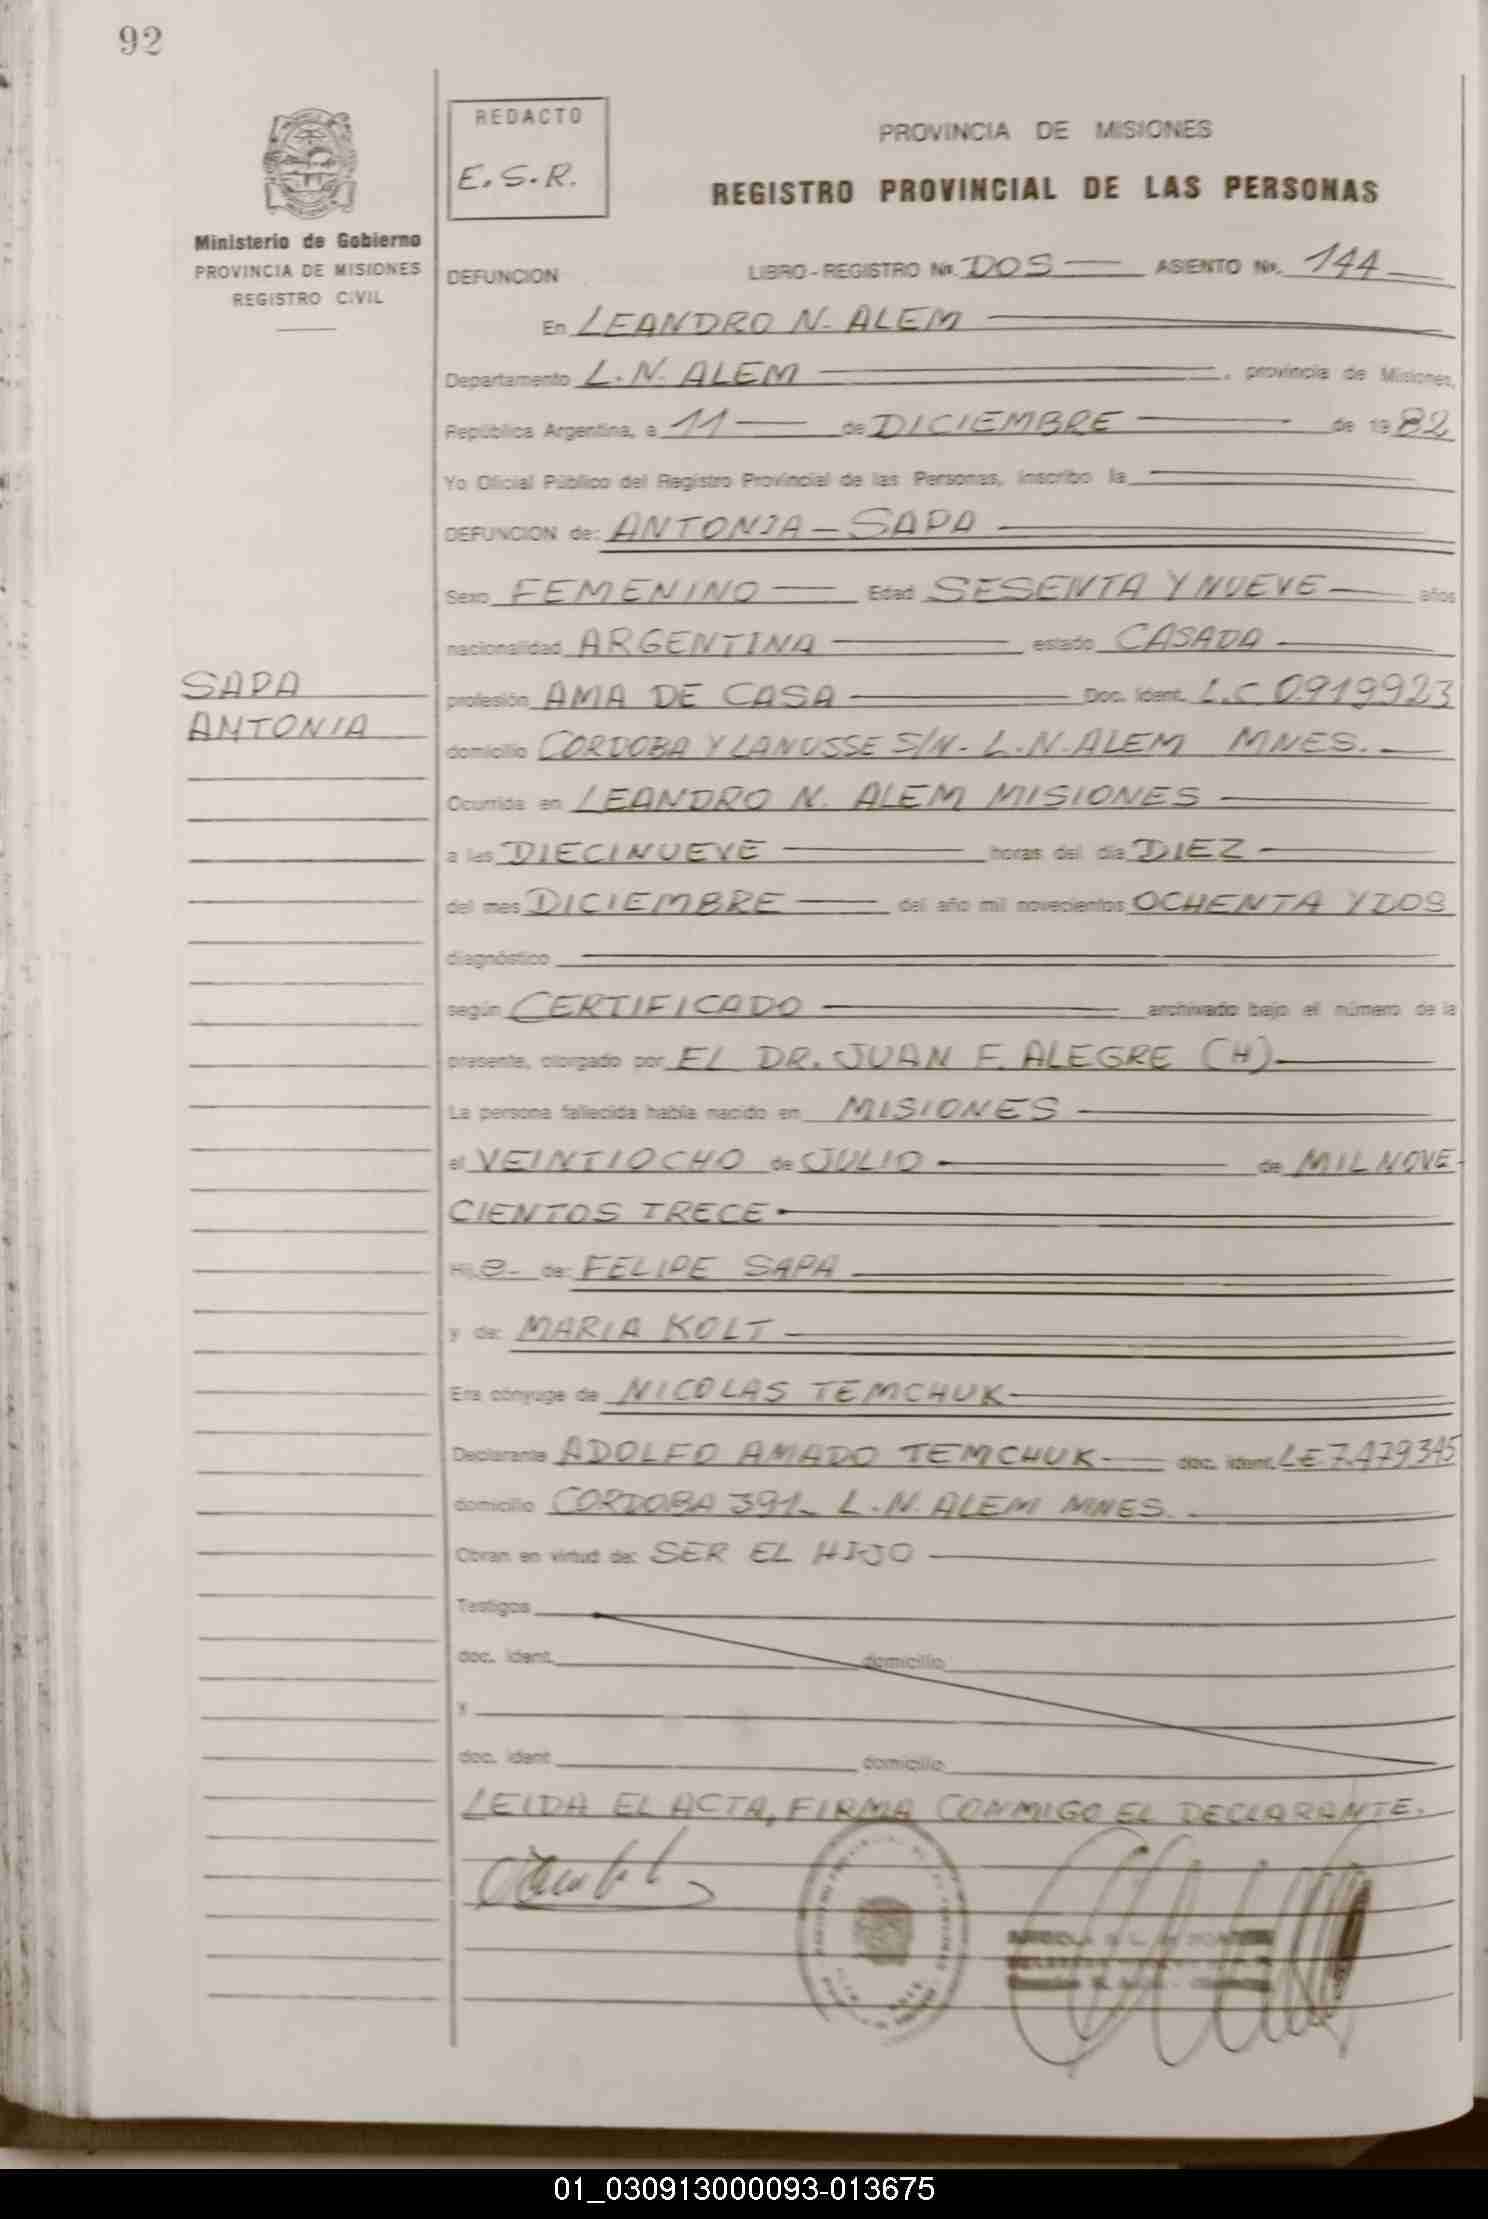 92
REDACTO
E.S.R.
PROVINCIA DE MISIONES
REGISTRO PROVINCIAL DE LAS PERSONAS
Ministerio de Gobierno
PROVINCIA DE MISIONES
REGISTRO CIVIL
DEFUNCION LIBRO-REGISTRO Nº. DOS ASIENTO Nº. 144
En LEANDRO N. ALEM
Departamento L.N. ALEM, provincia de Misiones,
República Argentina, a 11 de DICIEMBRE de 1982
Yo Oficial Público del Registro Provincial de las Personas, inscribo la
DEFUNCION de: ANTONIA - SAPA
Sexo FEMENINO Edad SESENTA Y NUEVE años
nacionalidad ARGENTINA estado CASADA
SAPA
ANTONIA
profesión AMA DE CASA Doc. Ident. L.C 0.919923
domicilio CORDOBA Y LANUSSE S/N- L.N. ALEM MNES.
Ocurrida en LEANDRO N. ALEM MISIONES
a las DIECINUEVE horas del día DIEZ
del mes DICIEMBRE del año mil novecientos OCHENTA Y DOS
diagnóstico
según CERTIFICADO archivado bajo el número de la
presente, otorgado por EL DR. JUAN F. ALEGRE (H)
La persona fallecida había nacido en MISIONES
el VEINTIOCHO de JULIO de MIL NOVE-
CIENTOS TRECE
Hij a de: FELIPE SAPA
y de: MARIA KOLT
Era cónyuge de NICOLAS TEMCHUK
Declarante ADOLFO AMADO TEMCHUK doc. ident. LE 7.479345
domicilio CORDOBA 391- L.N. ALEM MNES.
Obran en virtud de: SER EL HIJO
Testigos
doc. ident. domicilio
y
doc. ident. domicilio
LEIDA EL ACTA, FIRMA CONMIGO EL DECLARANTE.
01_030913000093-013675